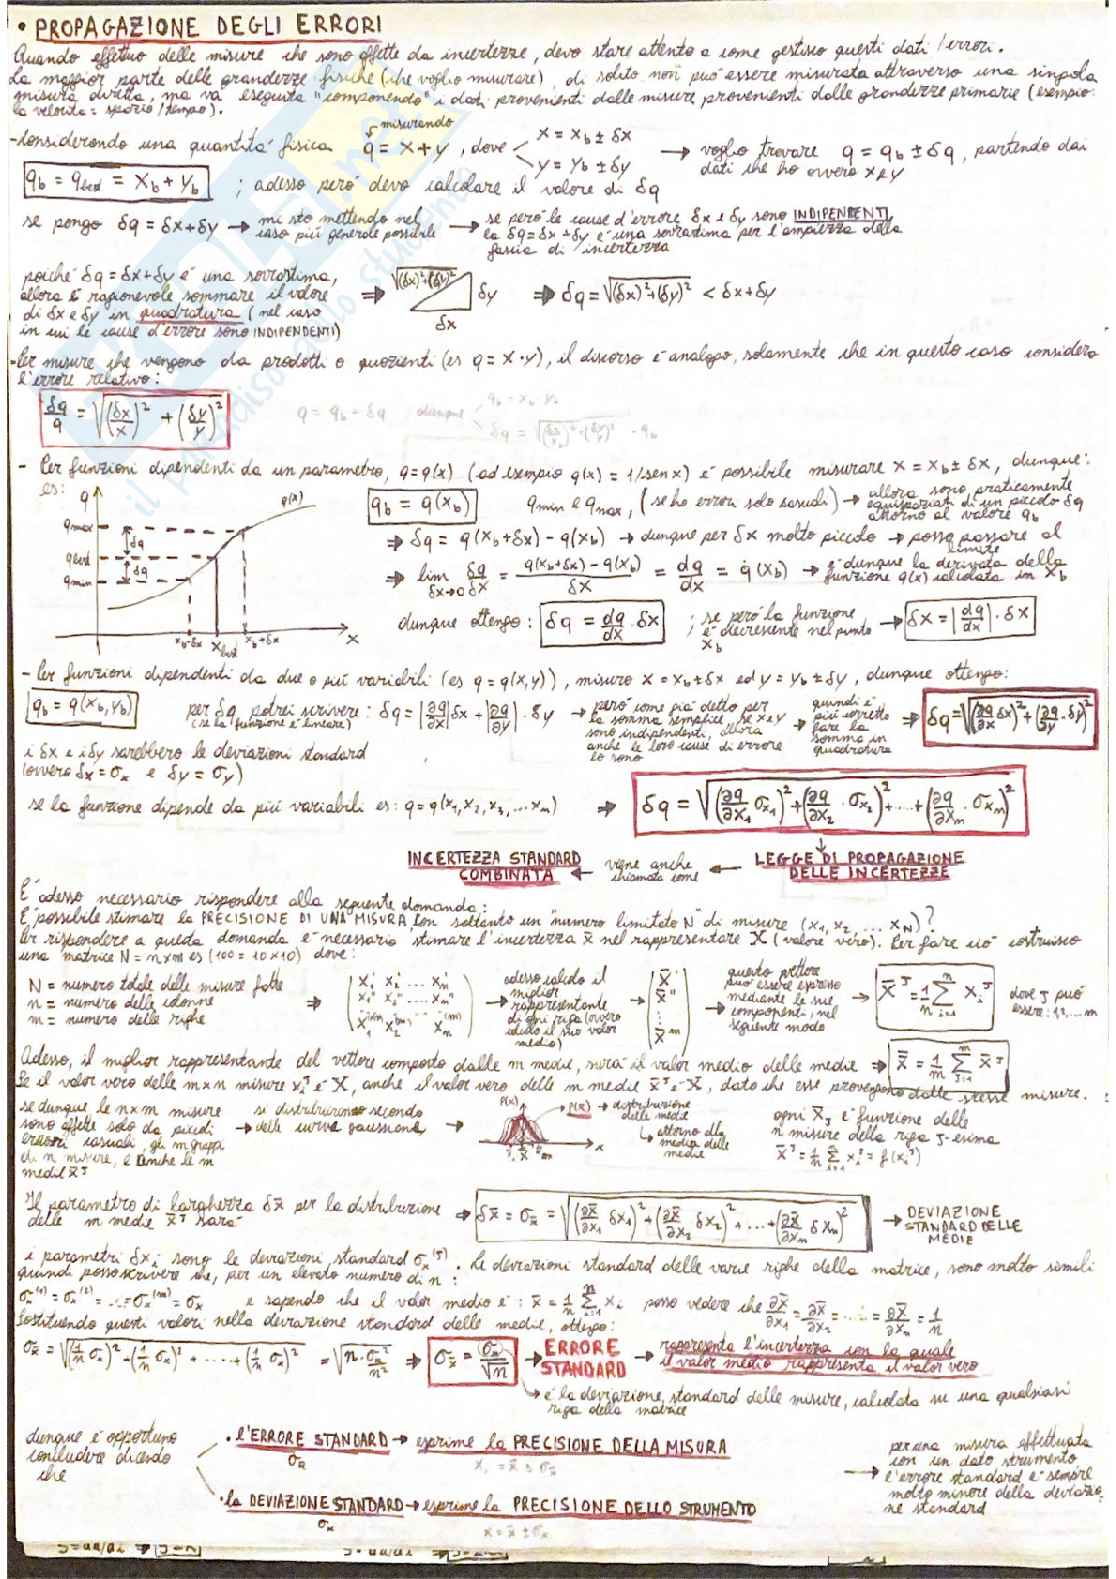 • PROPAGAZIONE DEGLI ERRORI
Quando effettuo delle misure che sono affette da incertezze, devo stare attento a come gestisco questi dati/errori.
La maggior parte delle grandezze fisiche (che voglio misurare), di solito non può essere misurata attraverso una singola
misura diretta, ma va eseguita "componendo" i dati provenienti dalle misure provenienti dalle grandezze primarie (esempio:
la velocità = spazio/tempo).
misurando
- Considerando una quantità fisica q = x + y, dove x = x_b ± δx y = y_b ± δy → voglio trovare q = q_b ± δq, partendo dai
dati che ho ovvero x e y
q_b = q_best = x_b + y_b ; adesso però devo calcolare il valore di δq
se pongo δq = δx + δy → mi sto mettendo nel caso più generale possibile → se però le cause d'errore δx e δy sono INDIPENDENTI,
la δq = δx + δy è una sovrastima per l'ampiezza della
fascia di incertezza
poiché δq = δx + δy è una sovrastima,
allora è ragionevole sommare il valore
di δx e δy in quadratura (nel caso
in cui le cause d'errore sono INDIPENDENTI)
⇒ √(δx)²+(δy)² δy δx ⇒ δq = √(δx)²+(δy)² < δx + δy
- Per misure che vengono da prodotti o quozienti (es q = x·y), il discorso è analogo, solamente che in questo caso considera
l'errore relativo:
δq/q = √(δx/x)² + (δy/y)²
q = q_b ± δq dunque
- Per funzioni dipendenti da un parametro, q = q(x) (ad esempio q(x) = 1/sen x) è possibile misurare x = x_b ± δx, dunque:
es:
q
q(x)
q max
δq
q best
δq
q min
x_b-δx x_best x_b+δx x
q_b = q(x_b) q min e q max, (se ho errori solo casuali) → allora sono praticamente
equispaziati di un piccolo δq
attorno al valore q_b
⇒ δq = q(x_b+δx) - q(x_b) → dunque per δx molto piccolo → posso passare al
limite
⇒ lim δx→0 δq/δx = q(x_b+δx) - q(x_b) / δx = dq/dx = q̇(x_b) → è dunque la derivata della
funzione q(x) calcolata in x_b
dunque ottengo: δq = dq/dx · δx ; se però la funzione
è decrescente nel punto
x_b → δx = |dq/dx| · δx
- Per funzioni dipendenti da due o più variabili (es q = q(x,y)), misuro x = x_b ± δx ed y = y_b ± δy, dunque ottengo:
q_b = q(x_b, y_b) per δq potrei scrivere: δq = |∂q/∂x| δx + |∂q/∂y| · δy
(se la funzione è lineare)
→ però come già detto per
la somma semplice, se x e y
sono indipendenti, allora
anche le loro cause di errore
lo sono
→ quindi è
più corretto
fare la
somma in
quadratura
⇒ δq = √(∂q/∂x δx)² + (∂q/∂y · δy)²
i δx e i δy sarebbero le deviazioni standard
(ovvero δx = σx e δy = σy)
se la funzione dipende da più variabili es: q = q(x1, x2, x3, ... xm) ⇒ δq = √(∂q/∂x1 σx1)² + (∂q/∂x2 · σx2)² + .... + (∂q/∂xm · σxm)²
INCERTEZZA STANDARD COMBINATA ← viene anche chiamata come ← LEGGE DI PROPAGAZIONE DELLE INCERTEZZE
È adesso necessario rispondere alla seguente domanda:
È possibile stimare la PRECISIONE DI UNA MISURA, con soltanto un "numero limitato N" di misure (x1, x2, ... xN)?
Per rispondere a questa domanda è necessario stimare l'incertezza x̄ nel rappresentare X (valore vero). Per fare ciò costruisco
una matrice N = n×m es (100 = 10×10) dove:
N = numero totale delle misure fatte
n = numero delle colonne
m = numero delle righe
⇒
→ adesso calcolo il
miglior
rappresentante
di ogni riga (ovvero
calcolo il suo valor
medio)
→ (x̄' x̄'' ⋮ x̄^m)
questo vettore
può essere espresso
mediante le sue
componenti, nel
seguente modo
→ x̄^J = 1/n Σ i=1 n x_i^J dove J può
essere: 1,2,...m
Adesso, il miglior rappresentante del vettore composto dalle m medie, sarà il valor medio delle medie ⇒ x̿ = 1/m Σ J=1 m x̄^J
Se il valor vero delle m×n misure x_i^J è X, anche il valor vero delle m medie x̄^J è X, dato che esse provengono dalle stesse misure.
se dunque le n×m misure
sono affette solo da piccoli
errori casuali, gli m gruppi
di n misure, e anche le m
medie x̄^J
→ si distribuiranno secondo
delle curve gaussiane →
P(x)
P(x̄) → distribuzione
delle medie
↳ attorno alla
media delle
medie
x
ogni x̄_J è funzione delle
n misure della riga J-esima
x̄^J = 1/n Σ i=1 n x_i^J = f(x_i^J)
Il parametro di larghezza δx̄ per la distribuzione
delle m medie x̄^J sarà
⇒ δx̄ = σx̄ = √(∂x̄/∂x1 δx1)² + (∂x̄/∂x2 δx2)² + ... + (∂x̄/∂xm δxm)² → DEVIAZIONE
STANDARD DELLE
MEDIE
i parametri δx_i sono le deviazioni standard σx^(J). Le deviazioni standard delle varie righe della matrice, sono molto simili
quindi posso scrivere che, per un elevato numero di n:
σx^(1) = σx^(2) = ... = σx^(m) = σx e sapendo che il valor medio è: x̄ = 1/n Σ i=1 n x_i posso vedere che ∂x̄/∂x1 = ∂x̄/∂x2 = .... = ∂x̄/∂xm = 1/n
Sostituendo questi valori nella deviazione standard delle medie, ottengo:
σx̄ = √(1/n σx)² + (1/n σx)² + ..... + (1/n σx)² = √n · σx²/n² ⇒ σx̄ = σx/√n → ERRORE
STANDARD → rappresenta l'incertezza con la quale
il valor medio rappresenta il valor vero
→ è la deviazione standard delle misure, calcolata su una qualsiasi
riga della matrice
dunque è opportuno
concludere dicendo
che
• l'ERRORE STANDARD → esprime la PRECISIONE DELLA MISURA
σx̄
• la DEVIAZIONE STANDARD → esprime la PRECISIONE DELLO STRUMENTO
σx
x = x̄ ± σx
→ per una misura effettuata
con un dato strumento
l'errore standard è sempre
molto minore della deviazio-
ne standard